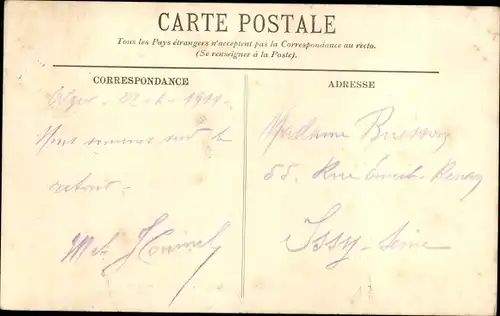 CARTE POSTALE
Tous les Pays étrangers n'acceptent pas la Correspondance au recto.
(Se renseigner à la Poste).
CORRESPONDANCE
ADRESSE
Alger - 22-6-1911-
Nous sommes sur le
retour -
Madame
55. Rue Ernest Renan
Issy - Seine